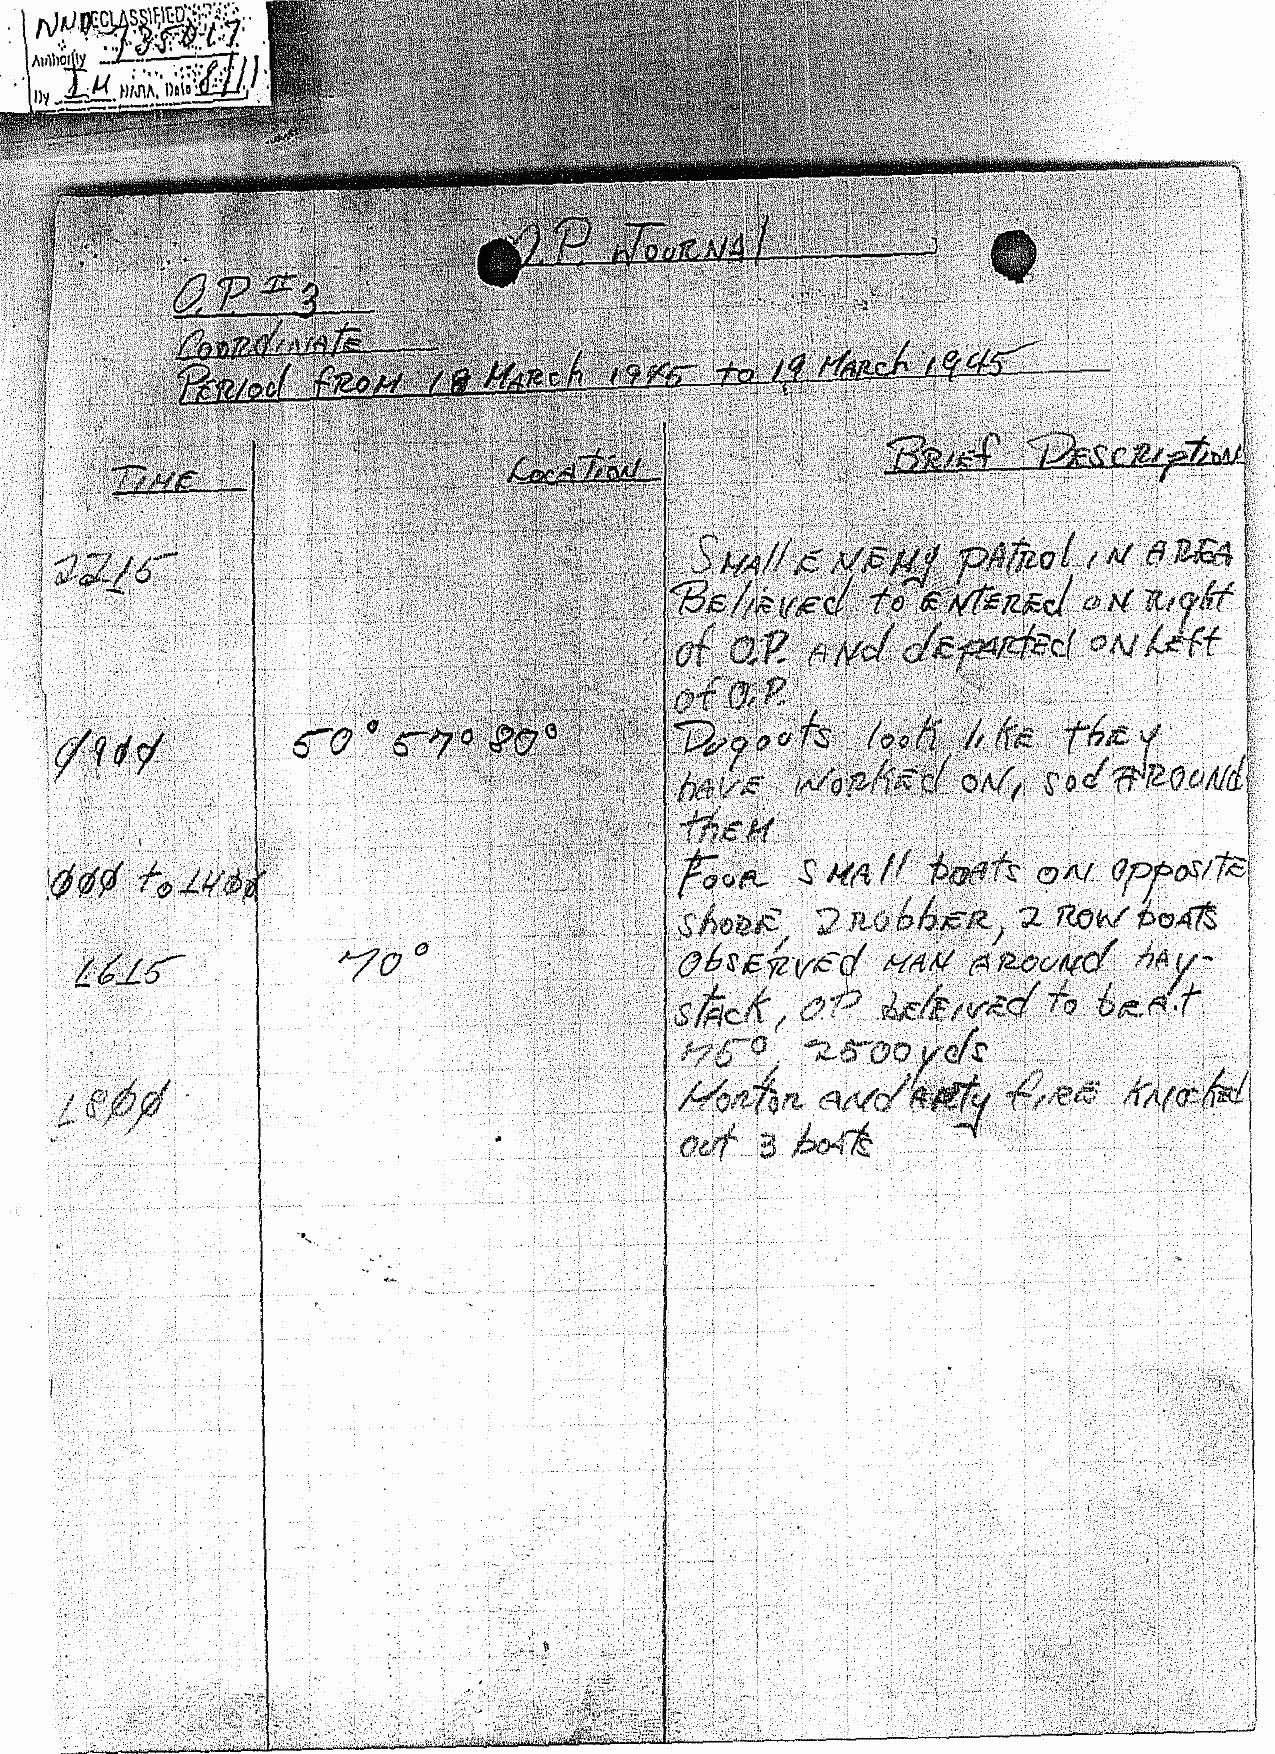 DECLASSIFIED
Authority NND 735017
By IM NARA, Date 8/11
O.P. JOURNAl
O.P. # 3
COORdiNATE
PERiOd fROM 18 MARch 1945 to 19 MARch 1945
TIME LOCATION BRIEf DESCRiptION
2215 SMAll ENEMy pATROl iN AREA
BEliEVEd to ENTEREd ON Right
of O.P. ANd dEpARtEd ON LEft
of O.P.
0900 50° 57° 80° Dugouts look likE thEy
hAVE WORKEd ON, sod AROUND
thEM
000 to 1400 FouR SMAll boAts ON OppOSITE
ShORE, 2 RubbER, 2 ROW boATS
1615 70° ObSERVEd MAN AROUNd hAy-
stAcK, OP bElEiVEd to bE At
75°, 2500 yds
1800 MoRtoR ANd ARty fiRE KNocKEd
out 3 boAts